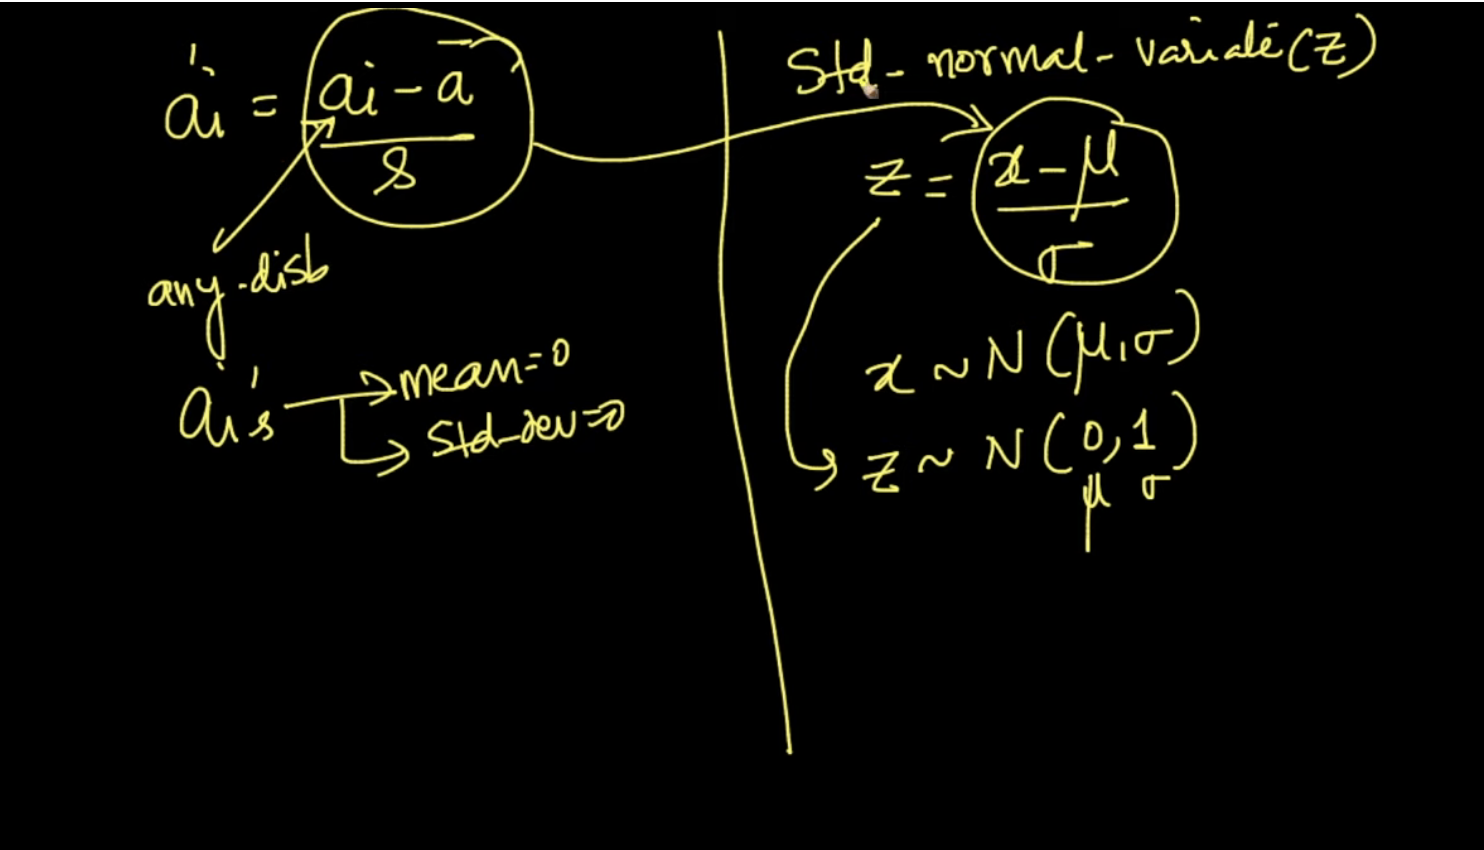 ai' = ai - a̅ / s
any-disb
ai's → mean=0
→ std-dev=0
Std-normal-variate(z)
z = x - μ / σ
x ~ N(μ,σ)
z ~ N(0,1)
μ σ